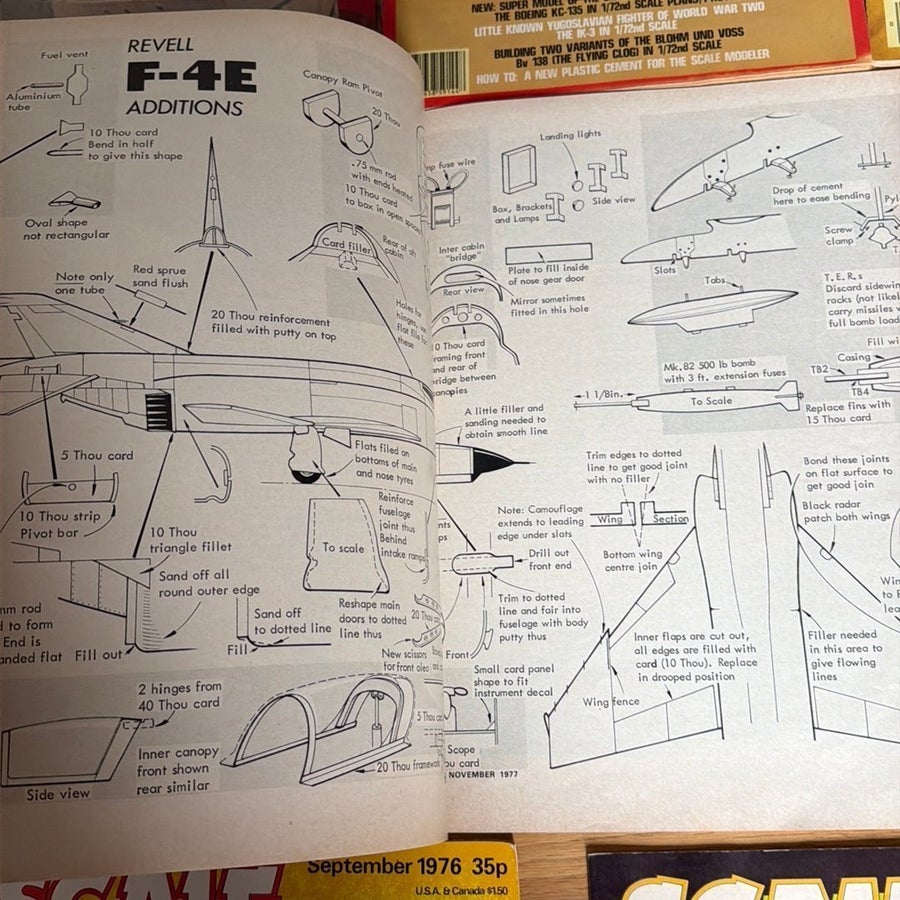 THE BOEING KC-135 IN 1/72nd SCALE PLANS/
LITTLE KNOWN YUGOSLAVIAN FIGHTER OF WORLD WAR TWO
THE IK-3 IN 1/72nd SCALE
BUILDING TWO VARIANTS OF THE BLOHM UND VOSS
Bv 138 (THE FLYING CLOG) IN 1/72nd SCALE
HOW TO: A NEW PLASTIC CEMENT FOR THE SCALE MODELER
REVELL
F-4E
ADDITIONS
Fuel vent
Aluminium
tube
10 Thou card
Bend in half
to give this shape
Oval shape
not rectangular
Note only
one tube
Red sprue
sand flush
20 Thou reinforcement
filled with putty on top
Canopy Ram Pivot
20 Thou
.75 mm rod
with ends heated
10 Thou card
to box in open spaces
Card filler
Rear of aft
cabin
Holes for
hinges,
flat
these
5 Thou card
10 Thou strip
Pivot bar
10 Thou
triangle fillet
Flats filed on
bottoms of main
and nose tyres
Reinforce
fuselage
joint thus
Behind
intake ramps
To scale
Sand off all
round outer edge
mm rod
to form
End is
flat
Fill out
Sand off
to dotted line
Fill
Reshape main
doors to dotted
line thus
20 Thou
New scissors
for front oleo
2 hinges from
40 Thou card
Inner canopy
front shown
rear similar
Side view
20 Thou framework
5 Thou
fuse wire
Landing lights
Box, Brackets
and Lamps
Side view
Inter cabin
"bridge"
Rear view
Plate to fill inside
of nose gear door
Mirror sometimes
fitted in this hole
10 Thou card
framing front
and rear of
bridge between
canopies
Slots
Tabs
Drop of cement
here to ease bending
Screw
clamp
T.E.R.s
Discard sidewin
racks (not likel
carry missiles
full bomb load
Fill
Casing
TB2
TB4
Replace fins with
15 Thou card
Mk.82 500 lb bomb
with 3 ft. extension fuses
1 1/8in.
To Scale
A little filler and
sanding needed to
obtain smooth line
Trim edges to dotted
line to get good joint
with no filler
Wing
Section
Bottom wing
centre join
Note: Camouflage
extends to leading
edge under slats
Bond these joints
on flat surface to
get good join
Black radar
patch both wings
Drill out
front end
Trim to dotted
line and fair into
fuselage with body
putty thus
Front
Small card panel
shape to fit
instrument decal
Inner flaps are cut out,
all edges are filled with
card (10 Thou). Replace
in drooped position
Wing fence
Filler needed
in this area to
give flowing
lines
Scope
card
NOVEMBER 1977
September 1976 35p
U.S.A. & Canada $1.50